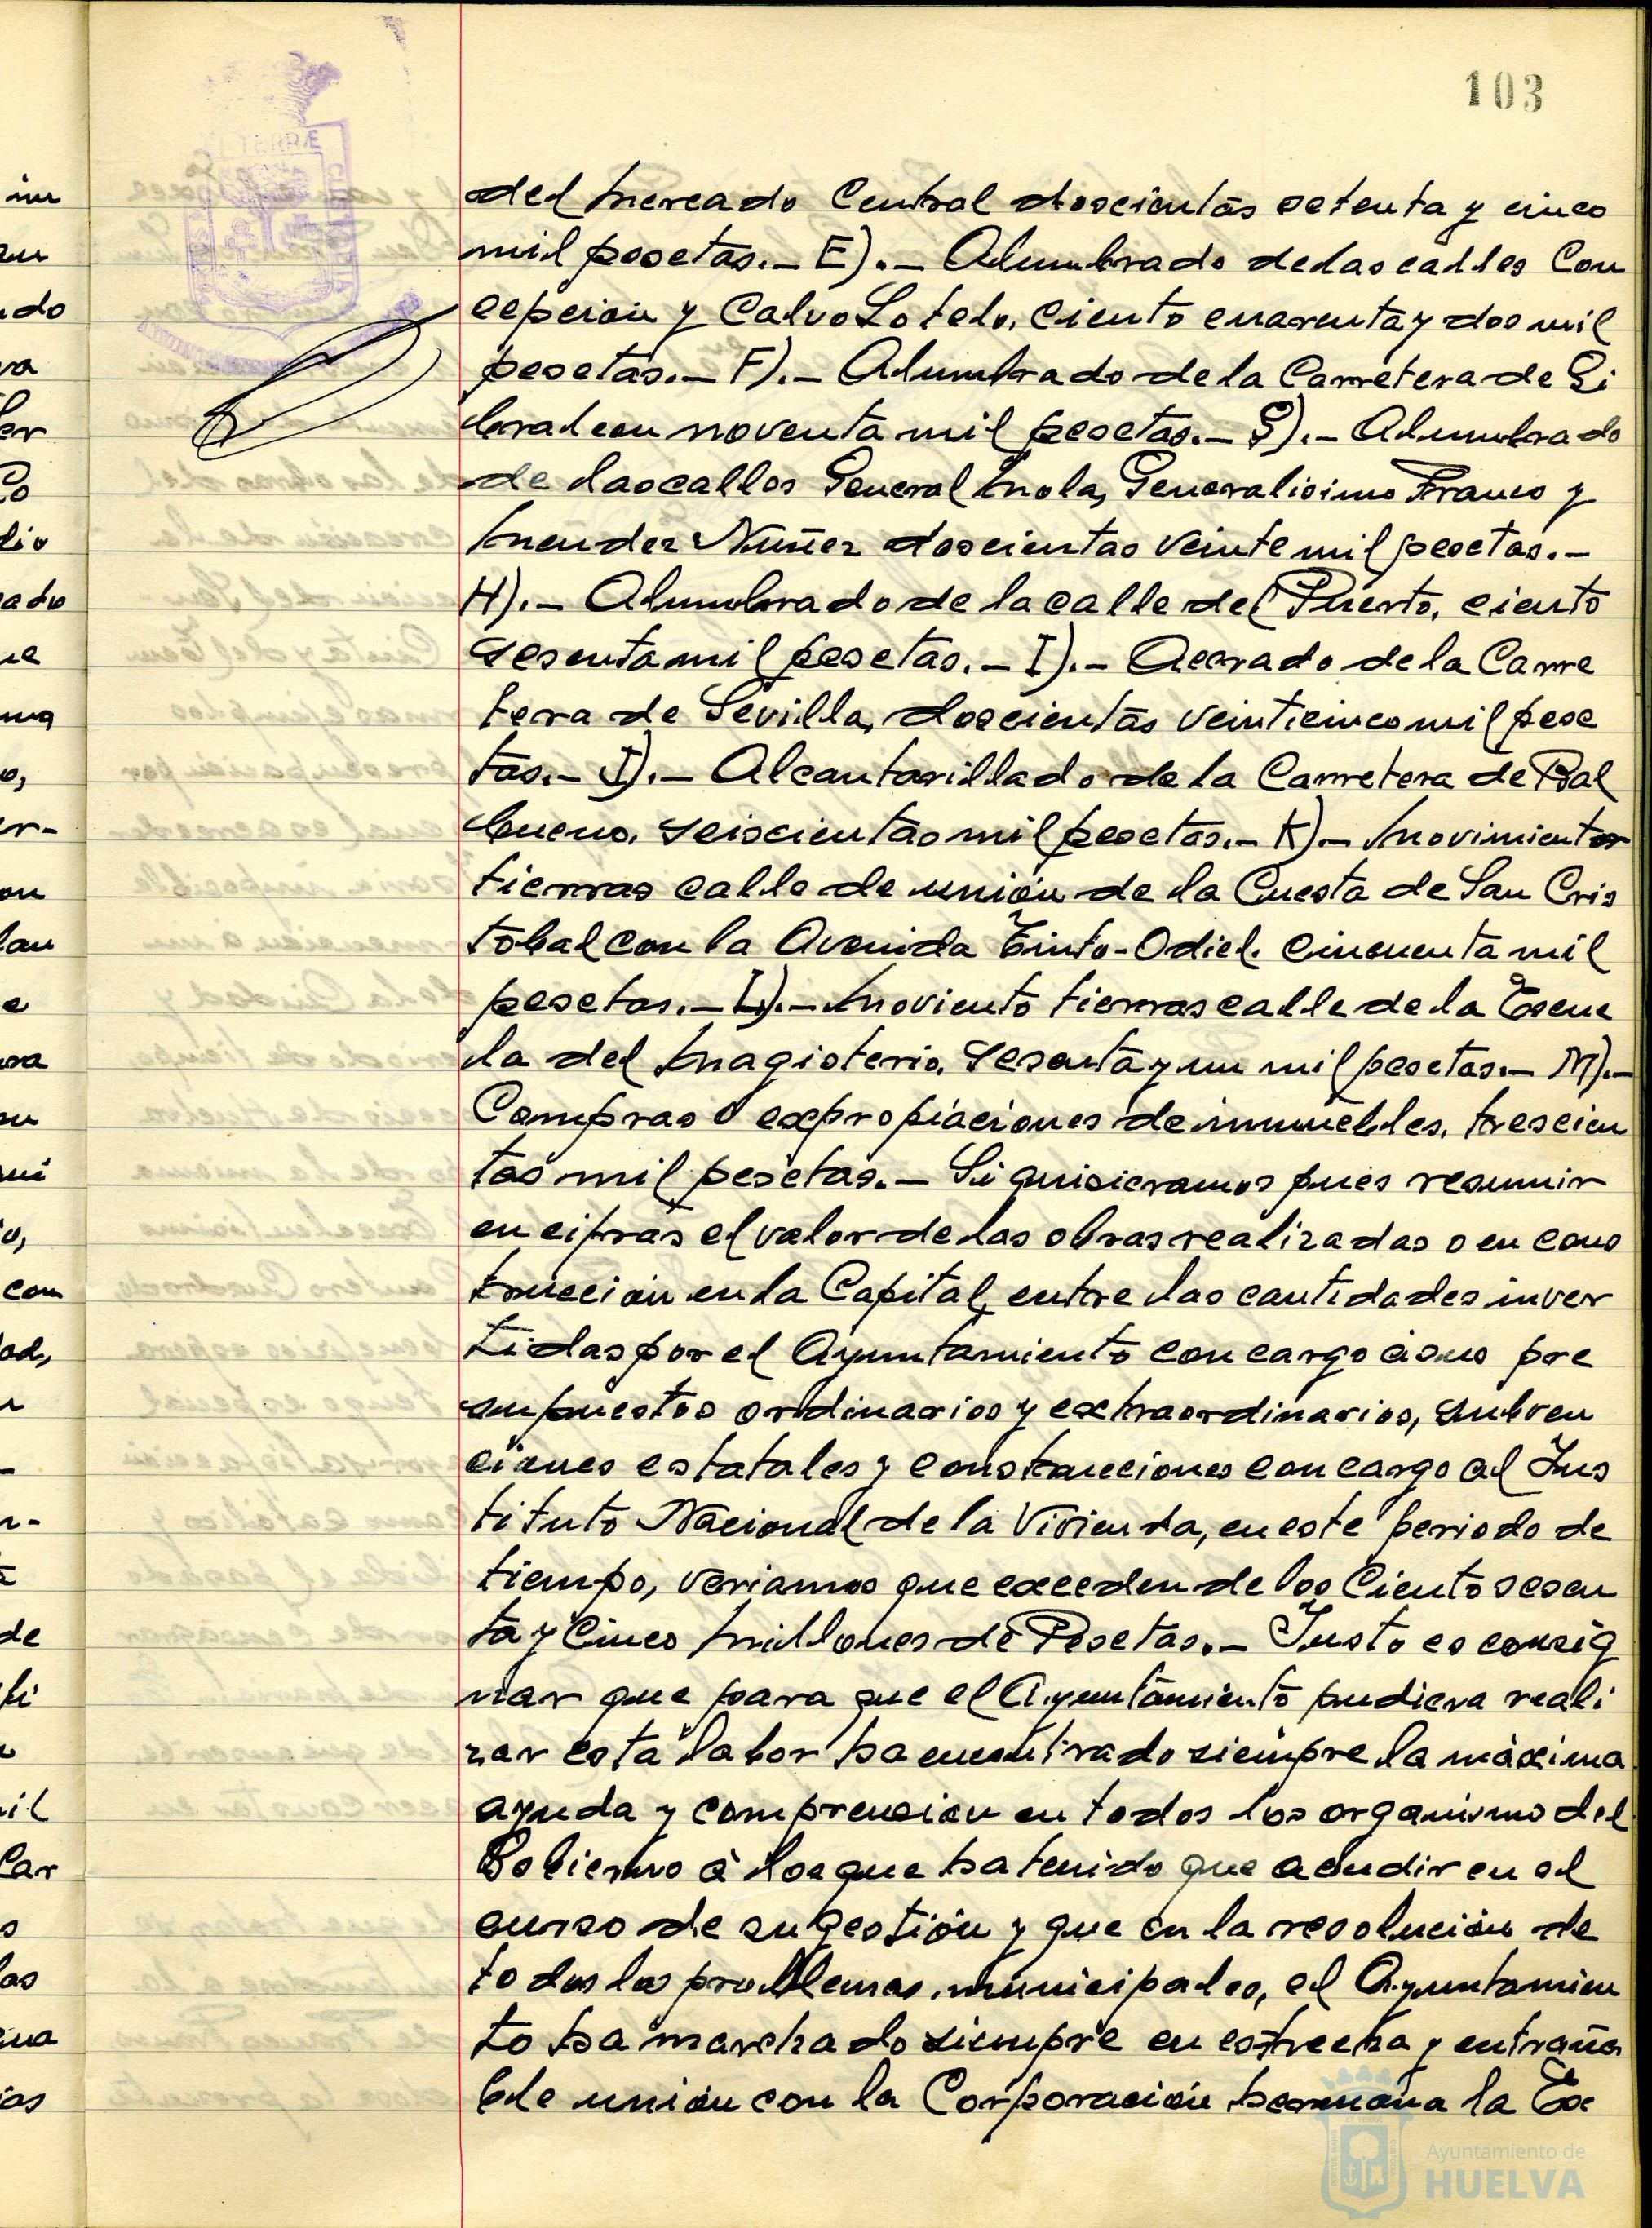 103
del Mercado Central doscientas setenta y cinco
mil pesetas.- E).- Alumbrado de las calles Con
cepcion y Calvo Sotelo, ciento cuarenta y dos mil
pesetas.- F).- Alumbrado de la Carretera de Gi
braleon noventa mil pesetas.- G).- Alumbrado
de las calles General Mola, Generalisimo Franco y
Mendez Nuñez doscientas veinte mil pesetas.-
H).- Alumbrado de la calle del Puerto, ciento
sesenta mil pesetas.- I).- Acerado de la Carre
tera de Sevilla, doscientas veinticinco mil pese
tas.- J).- Alcantarillado de la Carretera de Bal
bueno, seiscientas mil pesetas.- K).- Movimientos
tierras calle de unión de la Cuesta de San Cris
tobal con la Avenida Tinto-Odiel. cincuenta mil
pesetas.- L).- Moviento tierras calle de la Escue
la del Magisterio, sesenta y un mil pesetas.- M).-
Compras o expropiaciones de inmuebles, trescien
tas mil pesetas.- Si quisieramos pues resumir
en cifras el valor de las obras realizadas o en cons
trucción en la Capital, entre las cantidades inver
tidas por el Ayuntamiento con cargo à sus pre
supuestos ordinarios y extraordinarios, subven
ciones estatales y construcciones con cargo al Ins
tituto Nacional de la Vivienda, en este periodo de
tiempo, veriamos que exceden de los Ciento sesen
ta y Cinco Millones de Pesetas.- Justo es consig
nar que para que el Ayuntamiento pudiera reali
zar esta labor ha encontrado siempre la màxima
ayuda y comprension en todos los organismo del
Gobierno à los que ha tenido que acudir en el
curso de su gestión y que en la resolución de
todos los problemas municipales, el Ayuntamien
to ha marchado siempre en estrecha y entraña
ble unión con la Corporación hermana la Ex
Ayuntamiento de
HUELVA